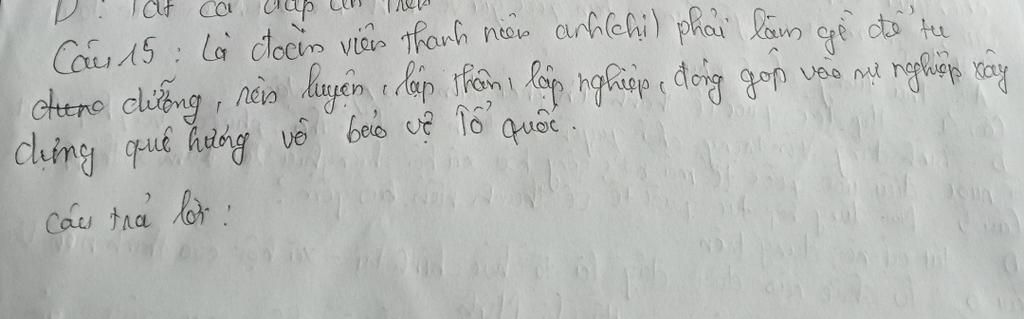 D: Tất cả đáp án trên
Câu 15: Là đoàn viên thanh niên anh(chị) phải làm gì để tu
dưỡng, rèn luyện, lập thân, lập nghiệp, đóng góp vào sự nghiệp xây
dựng quê hương về bảo vệ Tổ quốc.
Câu trả lời: